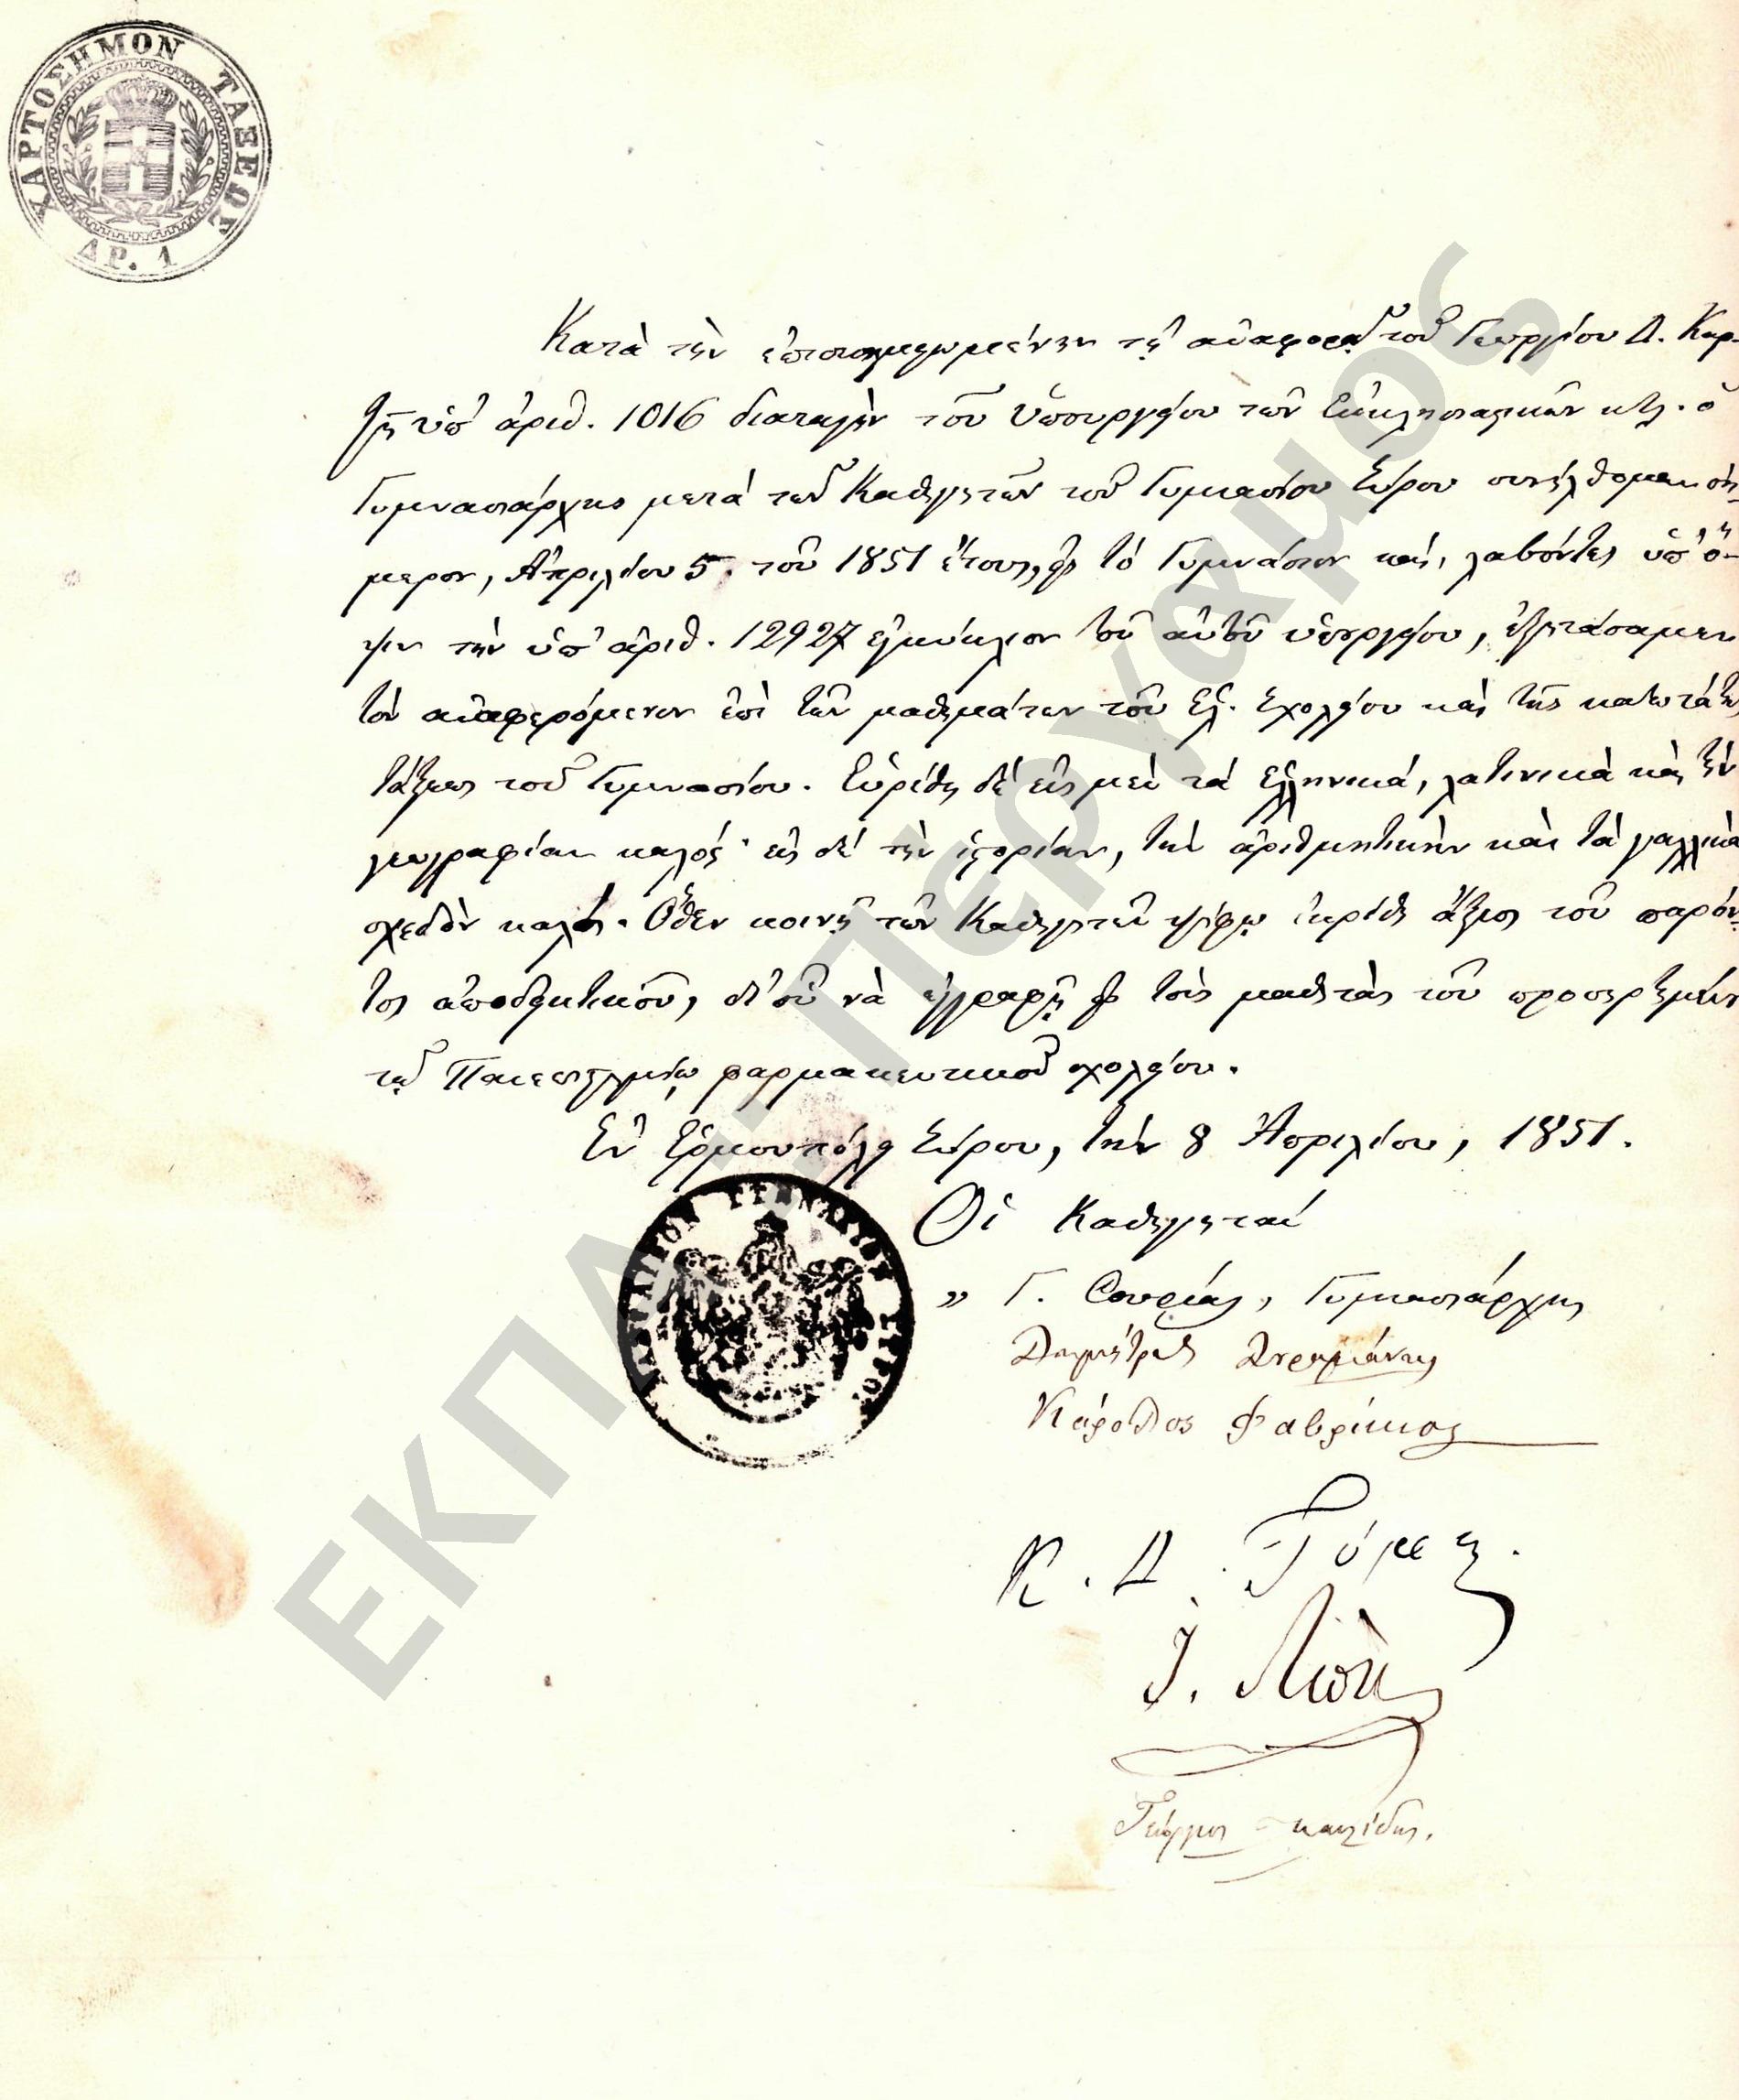 ΧΑΡΤΟΣΗΜΟΝ ΤΑΞΕΩΣ
ΔΡ. 1
Κατὰ τὴν ἐπισεσημειωμένην τῇ ἀναφορᾷ τοῦ Γεωργίου Δ. Καρ-
ὑπ' ἀριθ. 1016 διαταγὴν τοῦ Ὑπουργείου τῶν Ἐκκλησιαστικῶν κτλ. ὁ
Γυμνασιάρχης μετὰ τῶν Καθηγητῶν τοῦ Γυμνασίου Σύρου συνελθόμεν σή-
μερον, Ἀπριλίου 5. τοῦ 1851 ἔτους, εἰς τὸ Γυμνάσιον καὶ, λαβόντες ὑπ' ὄ-
ψιν τὴν ὑπ' ἀριθ. 12927 ἐγκύκλιον τοῦ αὐτοῦ ὑπουργείου, ἐξητάσαμεν
τὸν ἀναφερόμενον ἐπὶ τῶν μαθημάτων τοῦ Ἑλ. Σχολείου καὶ τῆς κατωτάτης
τάξεως τοῦ Γυμνασίου. Εὑρέθη δὲ εἰς μὲν τὰ Ἑλληνικά, λατινικὰ καὶ τὴν
γεωγραφίαν καλός· εἰς δὲ τὴν ἱστορίαν, τὴν ἀριθμητικὴν καὶ τὰ γαλλικὰ
σχεδὸν καλός. Ὅθεν κοινῇ τῶν Καθηγητῶν ψήφῳ ἐκρίθη ἄξιος τοῦ παρόν-
τος ἀποδεικτικοῦ, δι' οὗ νὰ ἐγγραφῇ εἰς τοὺς μαθητὰς τοῦ προσηρτημένου
τῷ Πανεπιστημίῳ φαρμακευτικοῦ σχολείου.
Ἐν Ἑρμουπόλει Σύρου, τὴν 8 Ἀπριλίου, 1851.
Οἱ Καθηγηταί
ΓΥΜΝΑΣΙΟΥ ΣΥΡΟΥ
" Γ. Σουρίας, Γυμνασιάρχης
Δημήτριος
Κάρολος Φαβρίκιος
Κ. Δ.
Ι.
Γεώργιος
ΕΚΠΑ - Πέργαμος